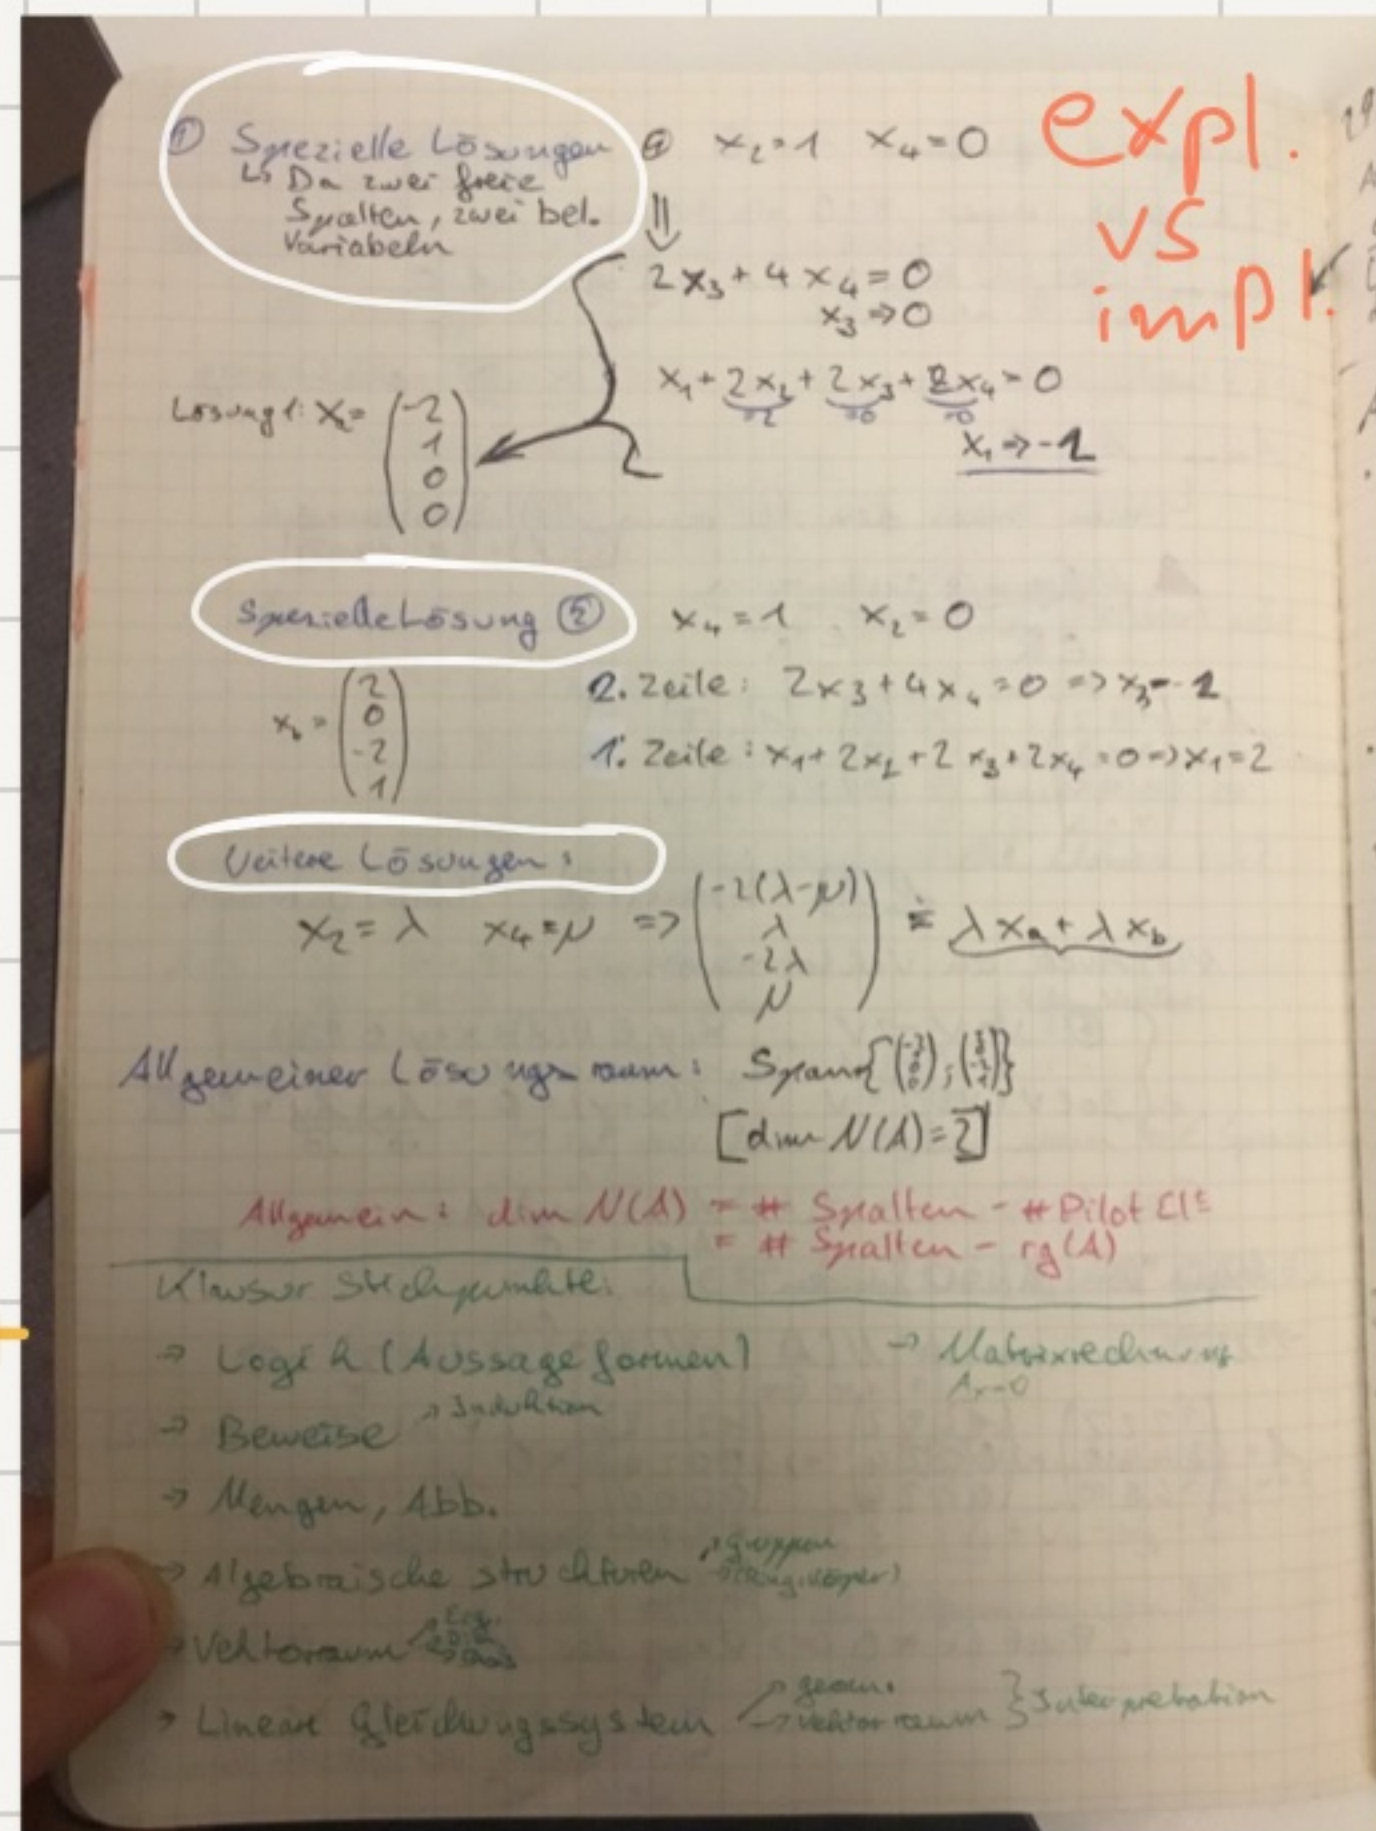 ① Spezielle Lösungen
↳ Da zwei freie
Spalten, zwei bel.
Variabeln
ⓐ x₂=1 x₄=0
⇓
2x₃+4x₄=0
x₃⇒0
expl.
vs
impl.
x₁+2x₂+2x₃+2x₄=0
=2 =0 =0
x₁⇒-2
Lösung 1: xₐ= (-2
1
0
0)
Spezielle Lösung ②
x₄=1 x₂=0
x_b = (2
0
-2
1)
2. Zeile: 2x₃+4x₄=0 => x₃=-2
1. Zeile: x₁+2x₂+2x₃+2x₄=0=>x₁=2
Weitere Lösungen:
x₂=λ x₄=μ => (-2(λ-μ)
λ
-2λ
μ) = λxₐ+λx_b
Allgemeiner Lösungsraum: Span{(-2 1 0 0);(2 0 -2 1)}
[dim N(A)=2]
Allgemein: dim N(A) = # Spalten - # Pilot El
= # Spalten - rg(A)
Klausur Stichpunkte:
→ Logik (Aussageformen)
→ Matrixrechnung
Ax=0
→ Beweise → Induktion
→ Mengen, Abb.
→ Algebraische strukturen → Gruppen
→ (Ring, Körper)
→ Vektorraum
→ Lineare Gleichungssystem → geom.
→ Vektorraum } Interpretation